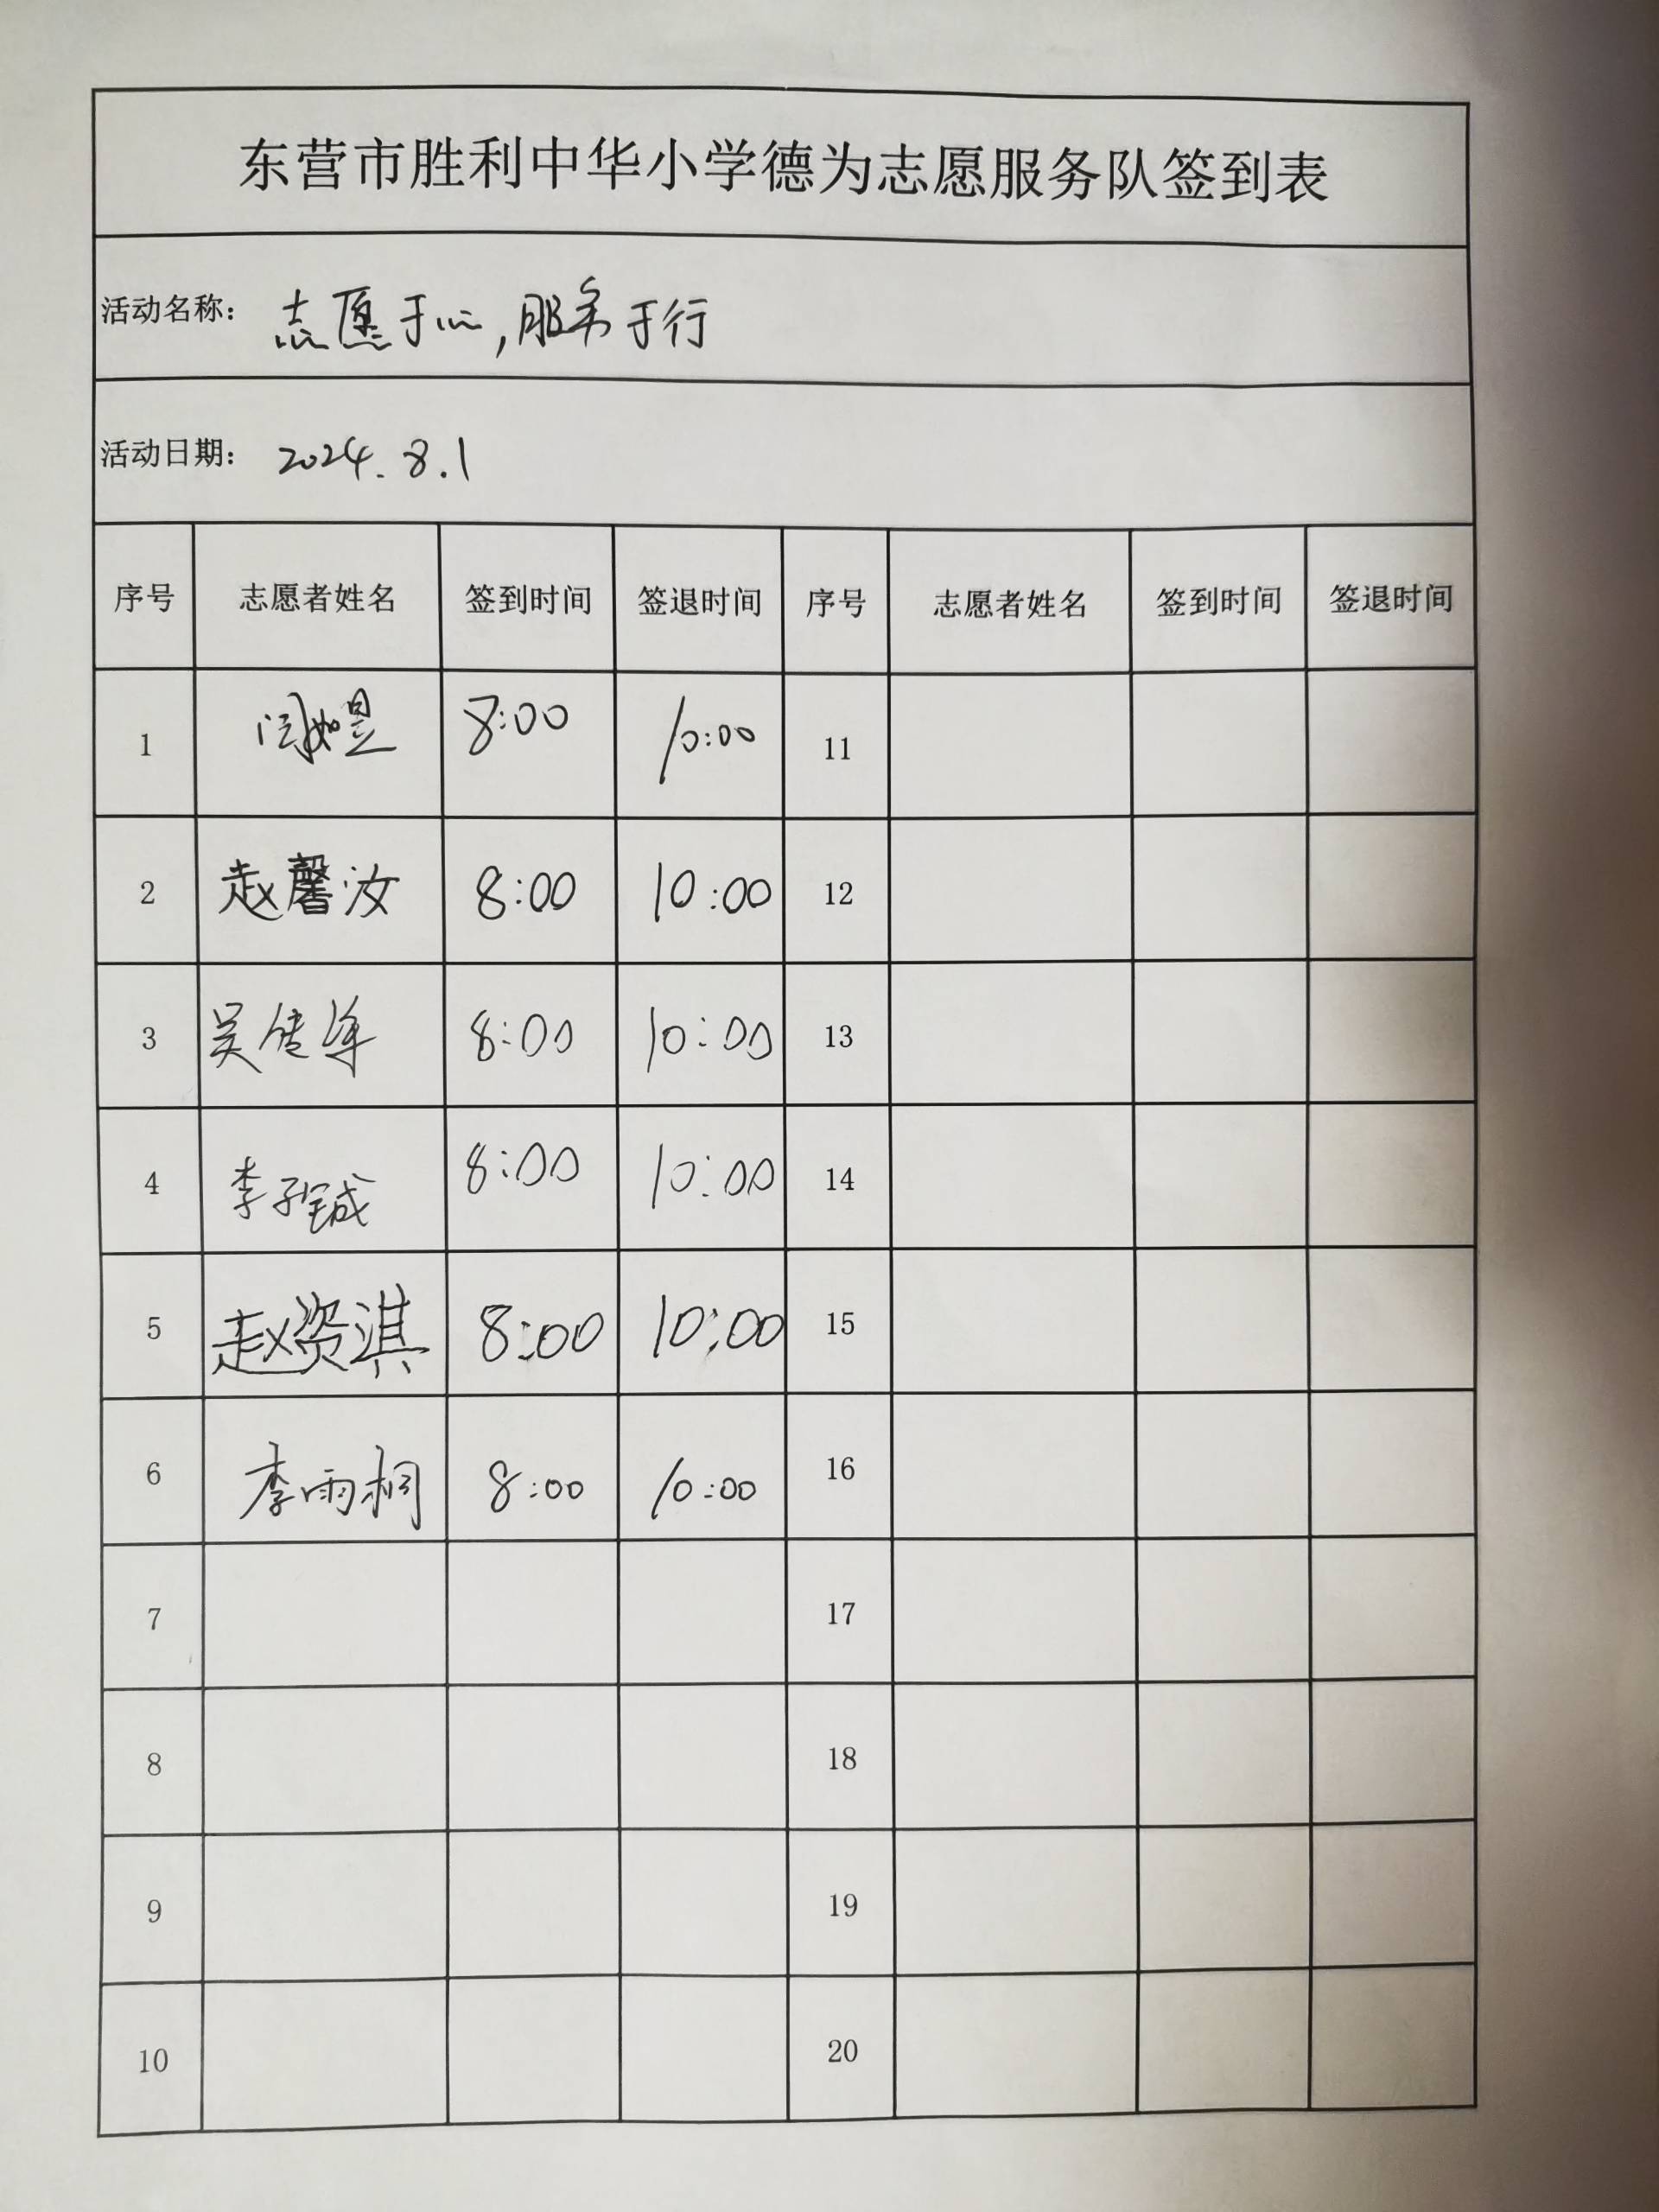 东营市胜利中华小学德为志愿服务队签到表
活动名称: 志愿于心,服务于行
活动日期: 2024.8.1
序号 志愿者姓名 签到时间 签退时间 序号 志愿者姓名 签到时间 签退时间
1 闫如昱 8:00 10:00 11
2 赵馨汝 8:00 10:00 12
3 吴 8:00 10:00 13
4 李子铖 8:00 10:00 14
5 赵资淇 8:00 10:00 15
6 李雨桐 8:00 10:00 16
7 17
8 18
9 19
10 20